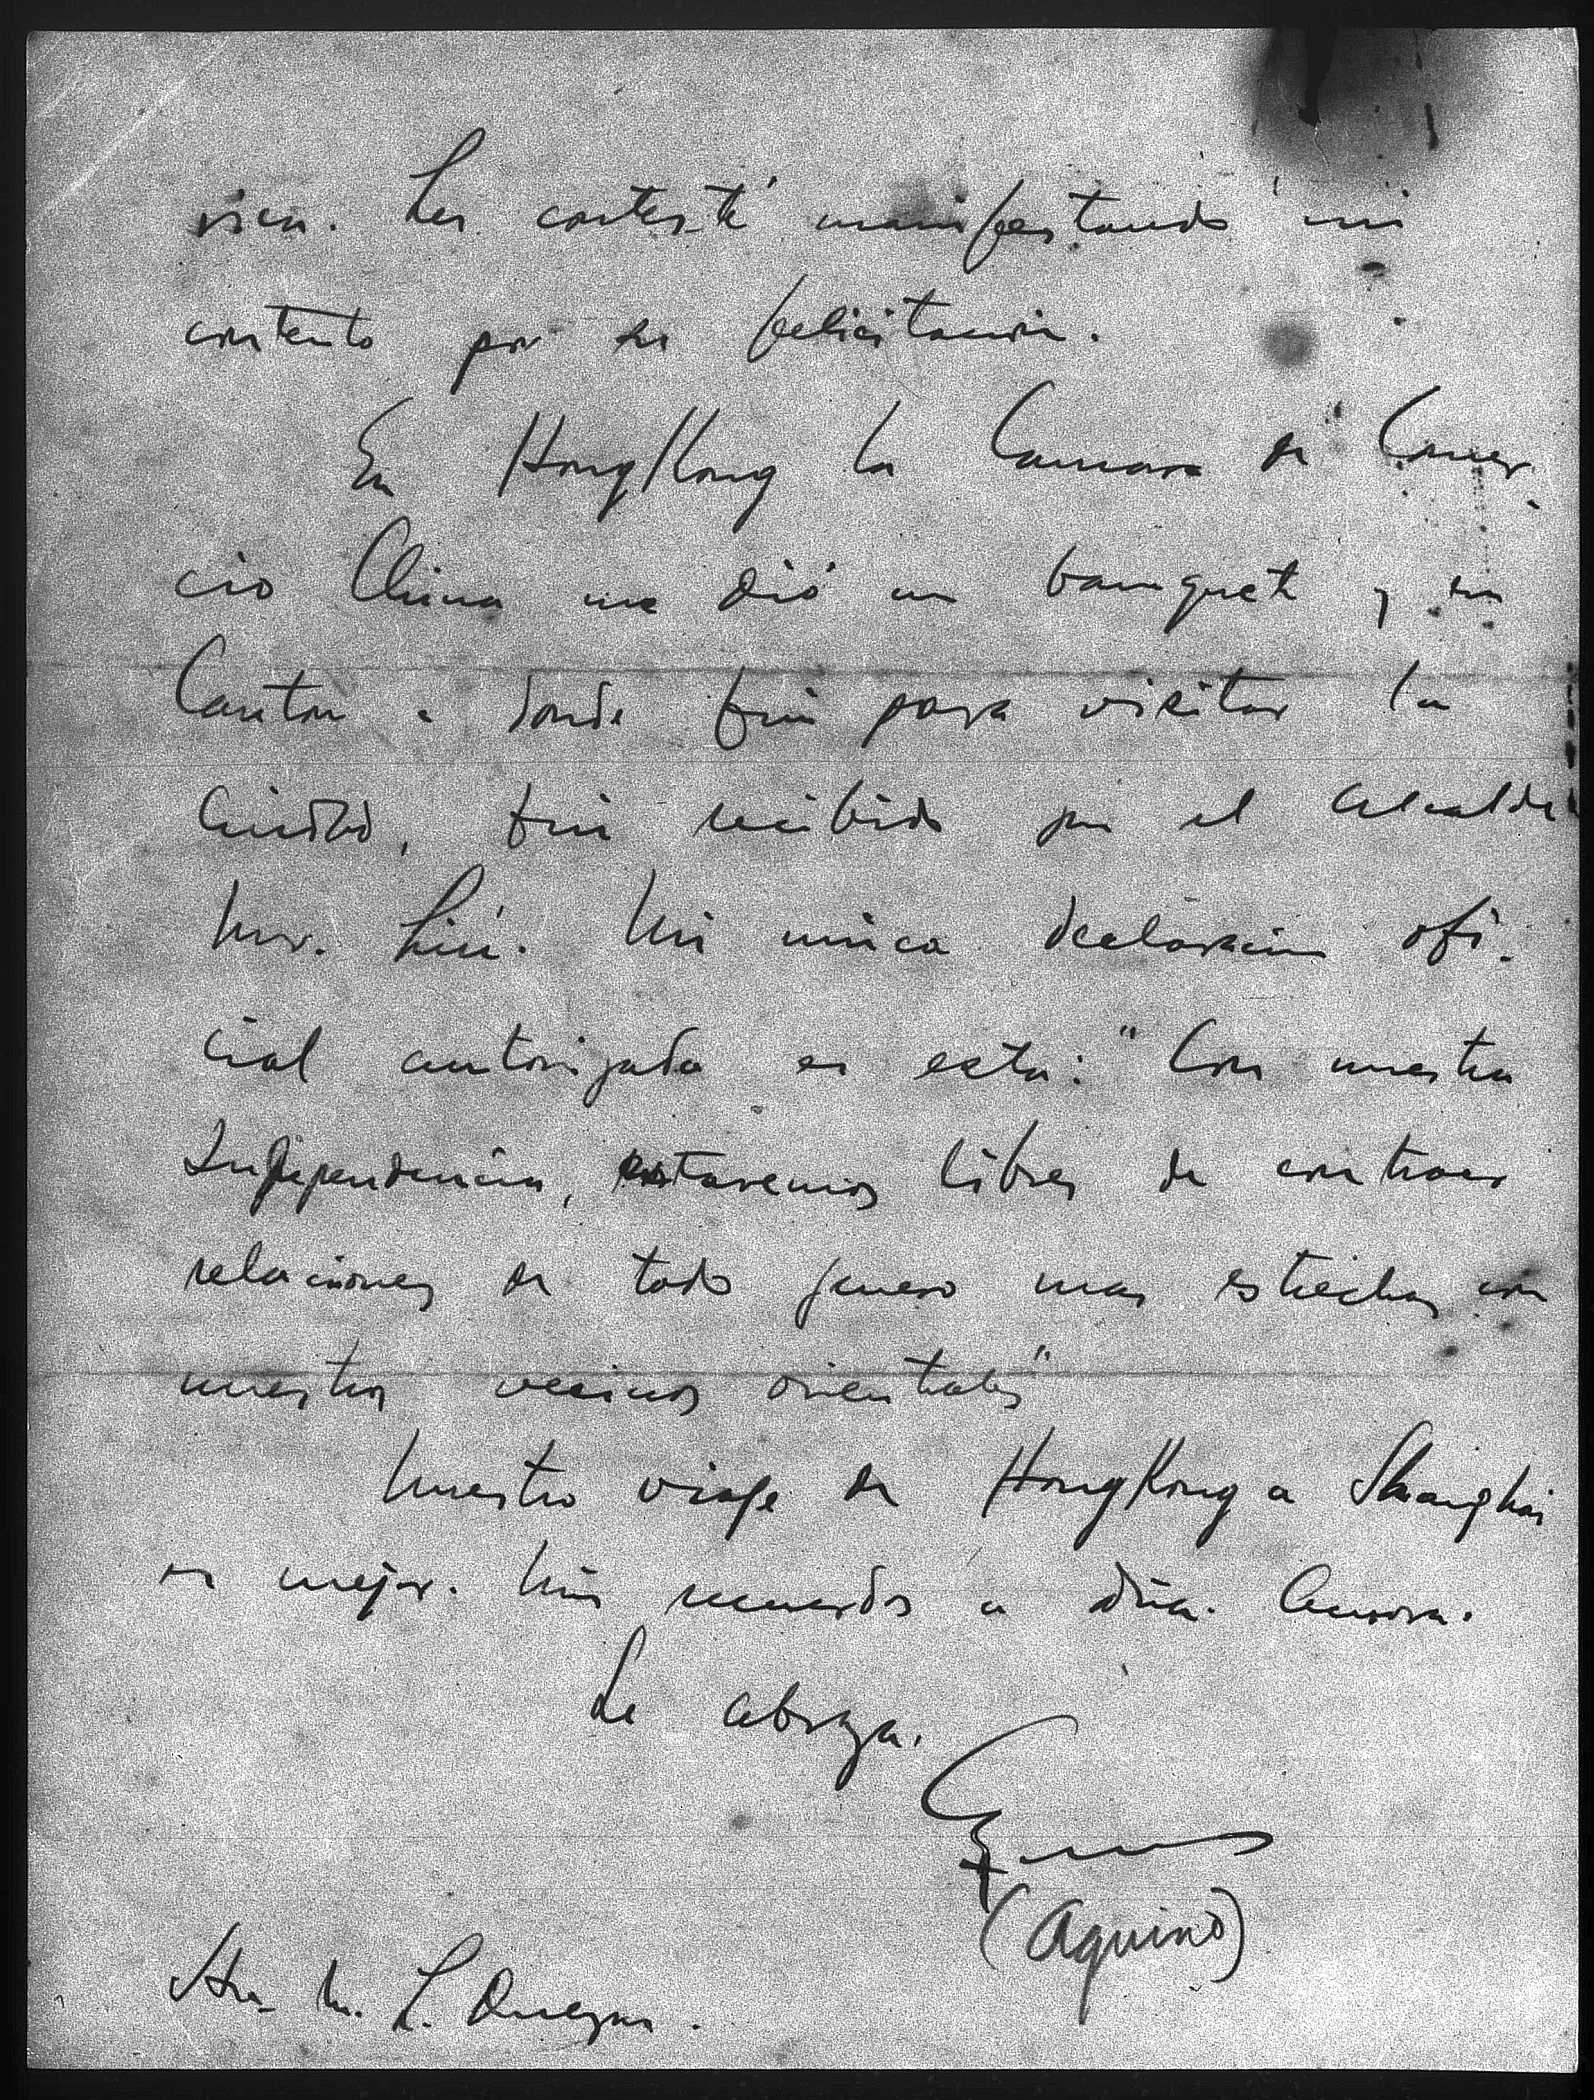 rica. Les contesté manifestando mi
contento por su felicitacion.
En HongKong la Camara de Comer-
cio China me dió un banquete y en
Canton a donde fui para visitar la
Ciudad, fui recibido por el Alcalde
Mr. Liu. Mi unica declaracion ofi-
cial autorizada es esta: "Con nuestra
Independencia, estaremos libres de contraer
relaciones de todo genero mas estrechas con
nuestros vecinos orientales"
Nuestro viaje de HongKong a Shanghai
es mejor. Mis recuerdos a Dña. Aurora.
Le abraza.
(Aquino)
M. L. Quezon.